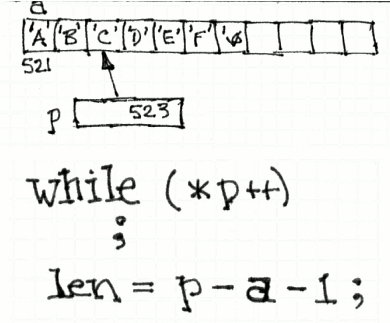 a
'A' 'B' 'C' 'D' 'E' 'F' '\0'
521
p 523
while (*p++)
;
len = p - a - 1;